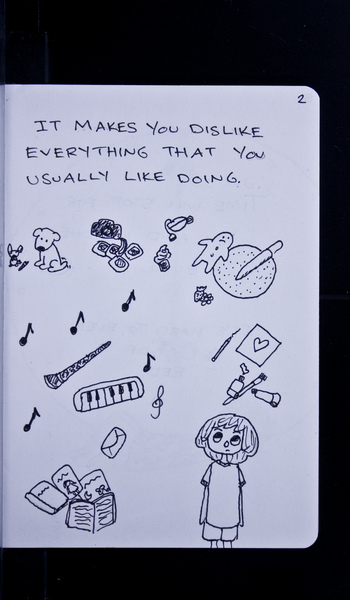 2
IT MAKES YOU DISLIKE
EVERYTHING THAT YOU
USUALLY LIKE DOING.